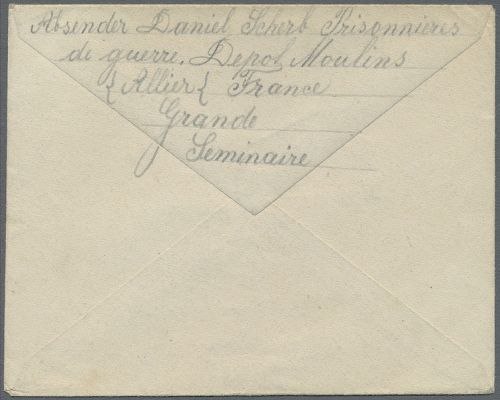 Absender Daniel Scherb Prisonnieres
de guerre. Depot Moulins
(Allier( France
Grande
Seminaire